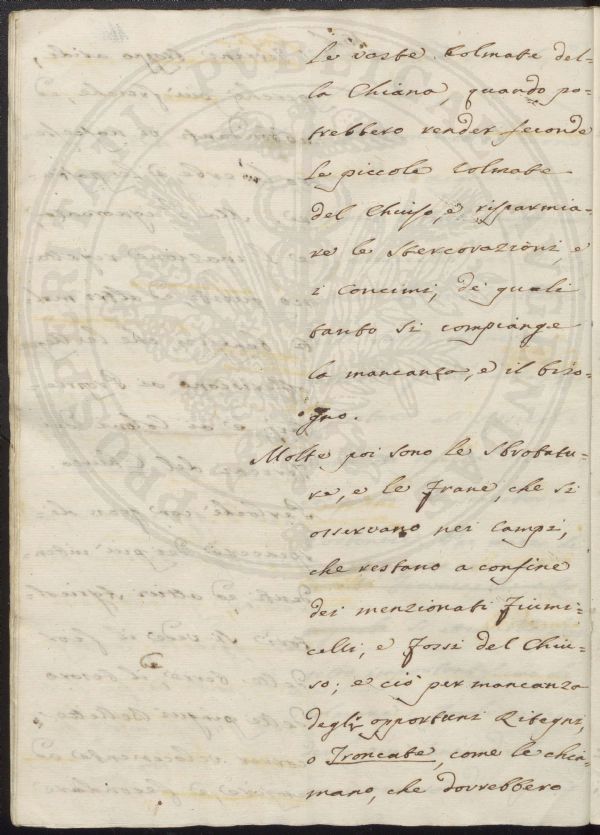 le vaste Colmate del-
la Chiana, quando po-
trebbero render feconde
le piccole Colmate
del Chiuso, e risparmia-
re le Stercorazioni, e
i Concimi, de quali
tanto si compiange
la mancanza, e il biso-
gno.
Molte poi sono le Sbrotatu-
re, e le Frane, che si
osservano nei Campi,
che restano a confine
dei menzionati Fiumi-
celli, e Fossi del Chiu-
so; e ciò per mancanza
degli opportuni Ritegni,
o Troncate, come le chia-
mano, che dovrebbero